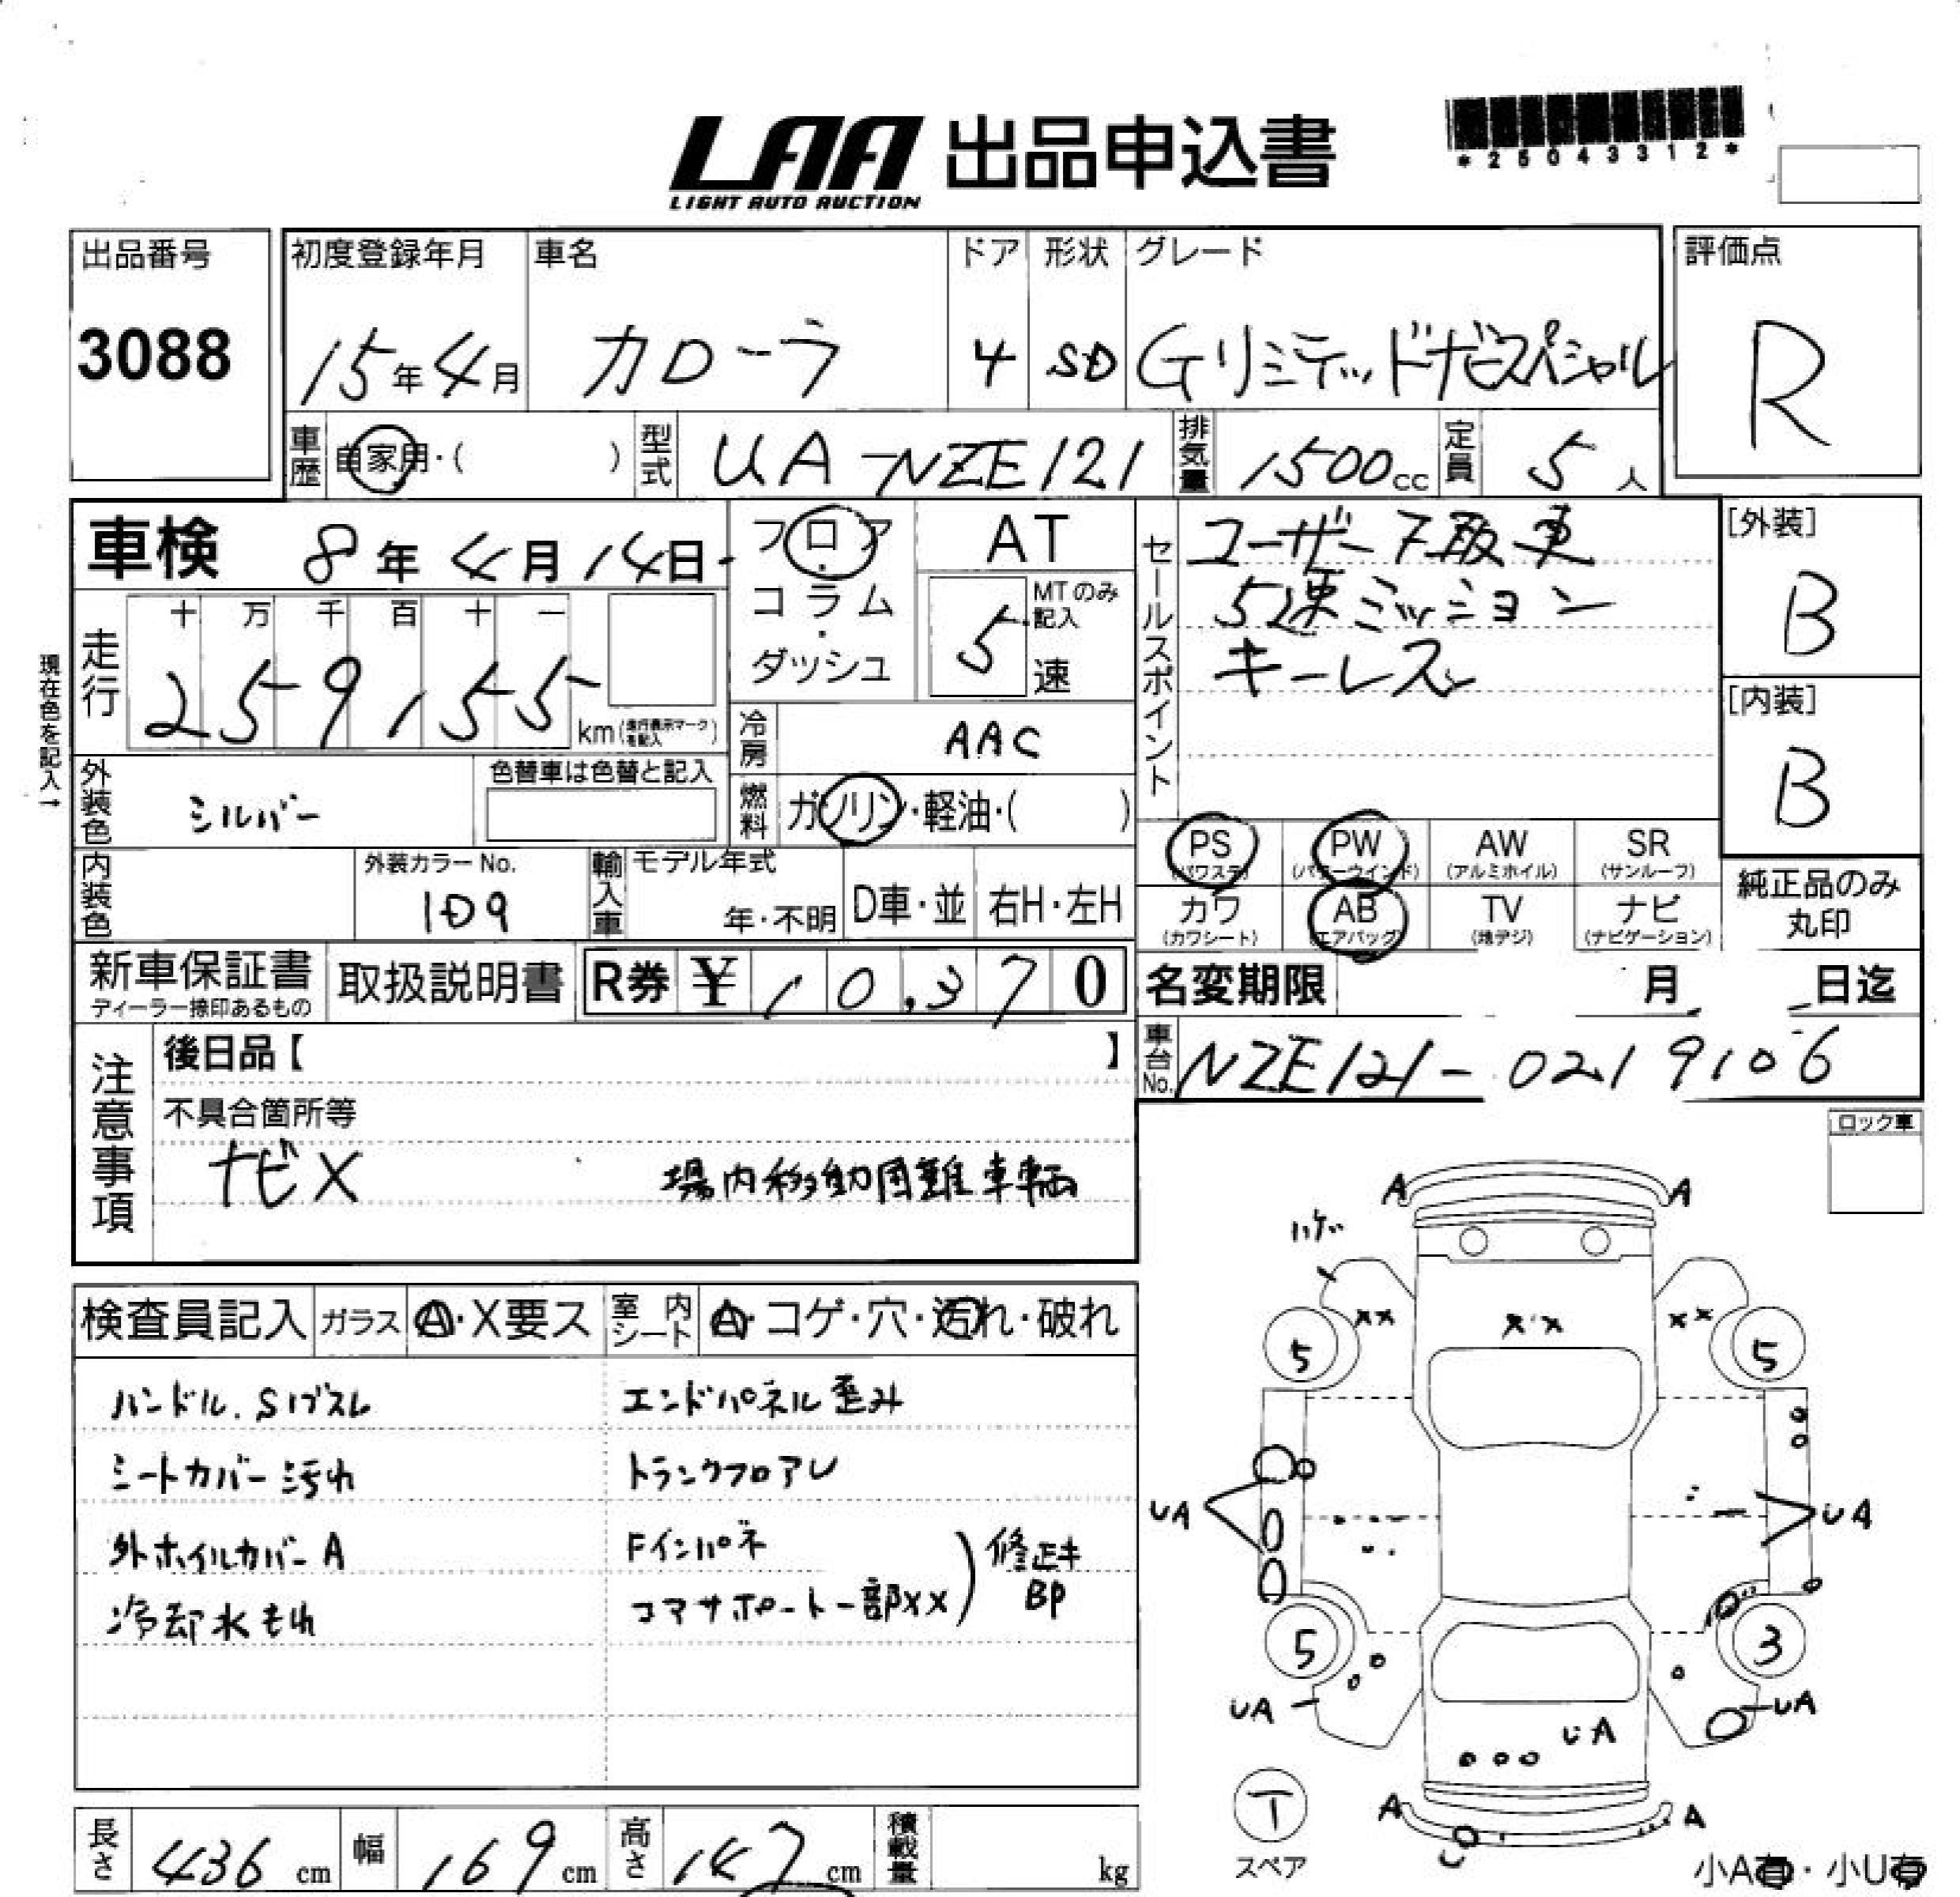 LAA 出品申込書
LIGHT AUTO AUCTION
*25043312*
出品番号
3088
初度登録年月
15年4月
車名
カローラ
ドア
4
形状
SD
グレード
Gリミテッドナビスペシャル
評価点
R
車歴
自家用・( )
型式
UA-NZE121
排気量
1500cc
定員
5人
車検 8年4月14日
フロア
・
コラム
・
ダッシュ
AT
MTのみ記入
5速
セールスポイント
ユーザー下取車
5速ミッション
キーレス
[外装]
B
[内装]
B
現在色を記入→
走行
十 万 千 百 十 一
2 5 9 1 5 5 km(走行表示マークを記入)
冷房
AAC
外装色
シルバー
色替車は色替と記入
燃料
ガソリン・軽油・( )
内装色
外装カラーNo.
109
輸入車
モデル年式
年・不明
D車・並
右H・左H
PS (パワステ)
PW (パワーウインド)
AW (アルミホイル)
SR (サンルーフ)
カワ (カワシート)
AB (エアバッグ)
TV (地デジ)
ナビ (ナビゲーション)
純正品のみ丸印
新車保証書
ディーラー捺印あるもの
取扱説明書
R券 ¥10,370
名変期限 月 日迄
車台No.
NZE121-0219106
注意事項
後日品【 】
不具合箇所等
ナビX 場内移動困難車輌
ロック車
検査員記入
ガラス
A・X要ス
室内シート
A・コゲ・穴・汚れ・破れ
ハンドル.Sノブスレ
シートカバー汚れ
外ホイルカバーA
冷却水もれ
エンドパネル歪み
トランクフロアレ
Fインパネ
コアサポート一部XX
修正キ
BP
A A
ハゲ
XX XX XX
5 5
UA UA
5 3
UA UA
UA
T
スペア
A A
U
小A有・小U有
長さ 436 cm
幅 169 cm
高さ 147 cm
積載量 kg